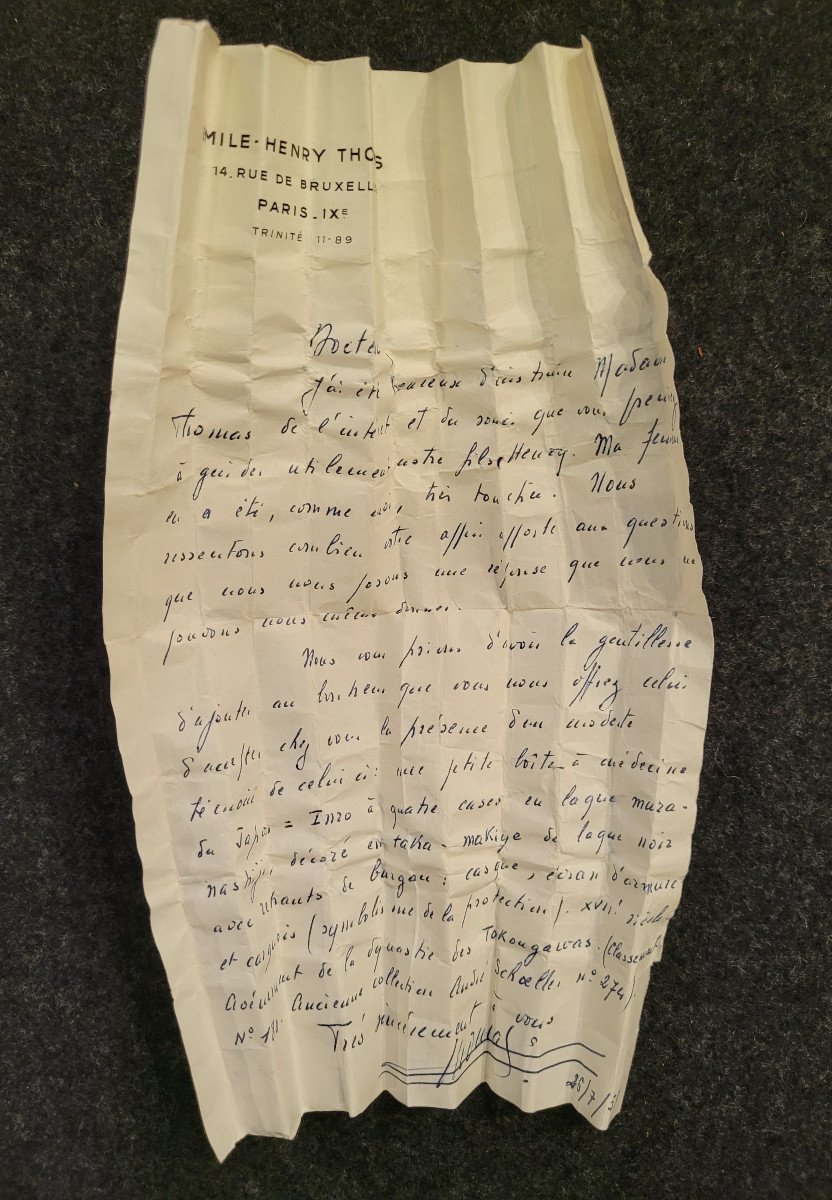 MILE-HENRY THO S
14, RUE DE BRUXELL
PARIS_IXE
TRINITÉ 11-89
Docteu
J'ai été heureux d'instruire Madam
Thomas de l'intérêt et du souci que vous preniez
à guider utilement notre fils Henry. Ma femme
en a été, comme moi, très touchée. Nous
ressentons combien votre affirmation apporte aux questions
que nous nous posons une réponse que nous ne
pouvons nous même donner.
Nous vous prions d'avoir la gentillesse
d'ajouter au bonheur que vous nous offrez celui
d'accepter chez vous la présence d'un modeste
témoin de celui ci: une petite boîte à médecine
du Japon = Inro à quatre cases en laque mura-
nashiji, décoré en taka-makiye de laque noir
avec rehauts de burgau: casque, écran d'armure
et (symbolisme de la protection). XVII. siècle
Avènement de la dynastie des Tokougawas. (Classement
No Ancienne collection André Schoeller no 274).
Très sincèrement à vous
Thomas
25/7/3